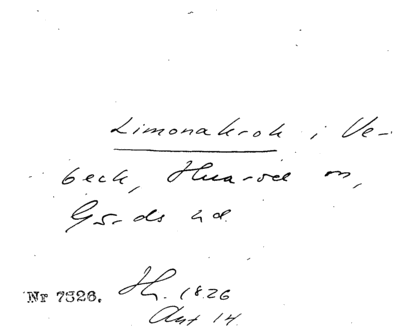 Limonakrok i Ve-
beck, Huaröd sn,
Gärds hd.
Nr 7326. Hh. 1826
Akt 14